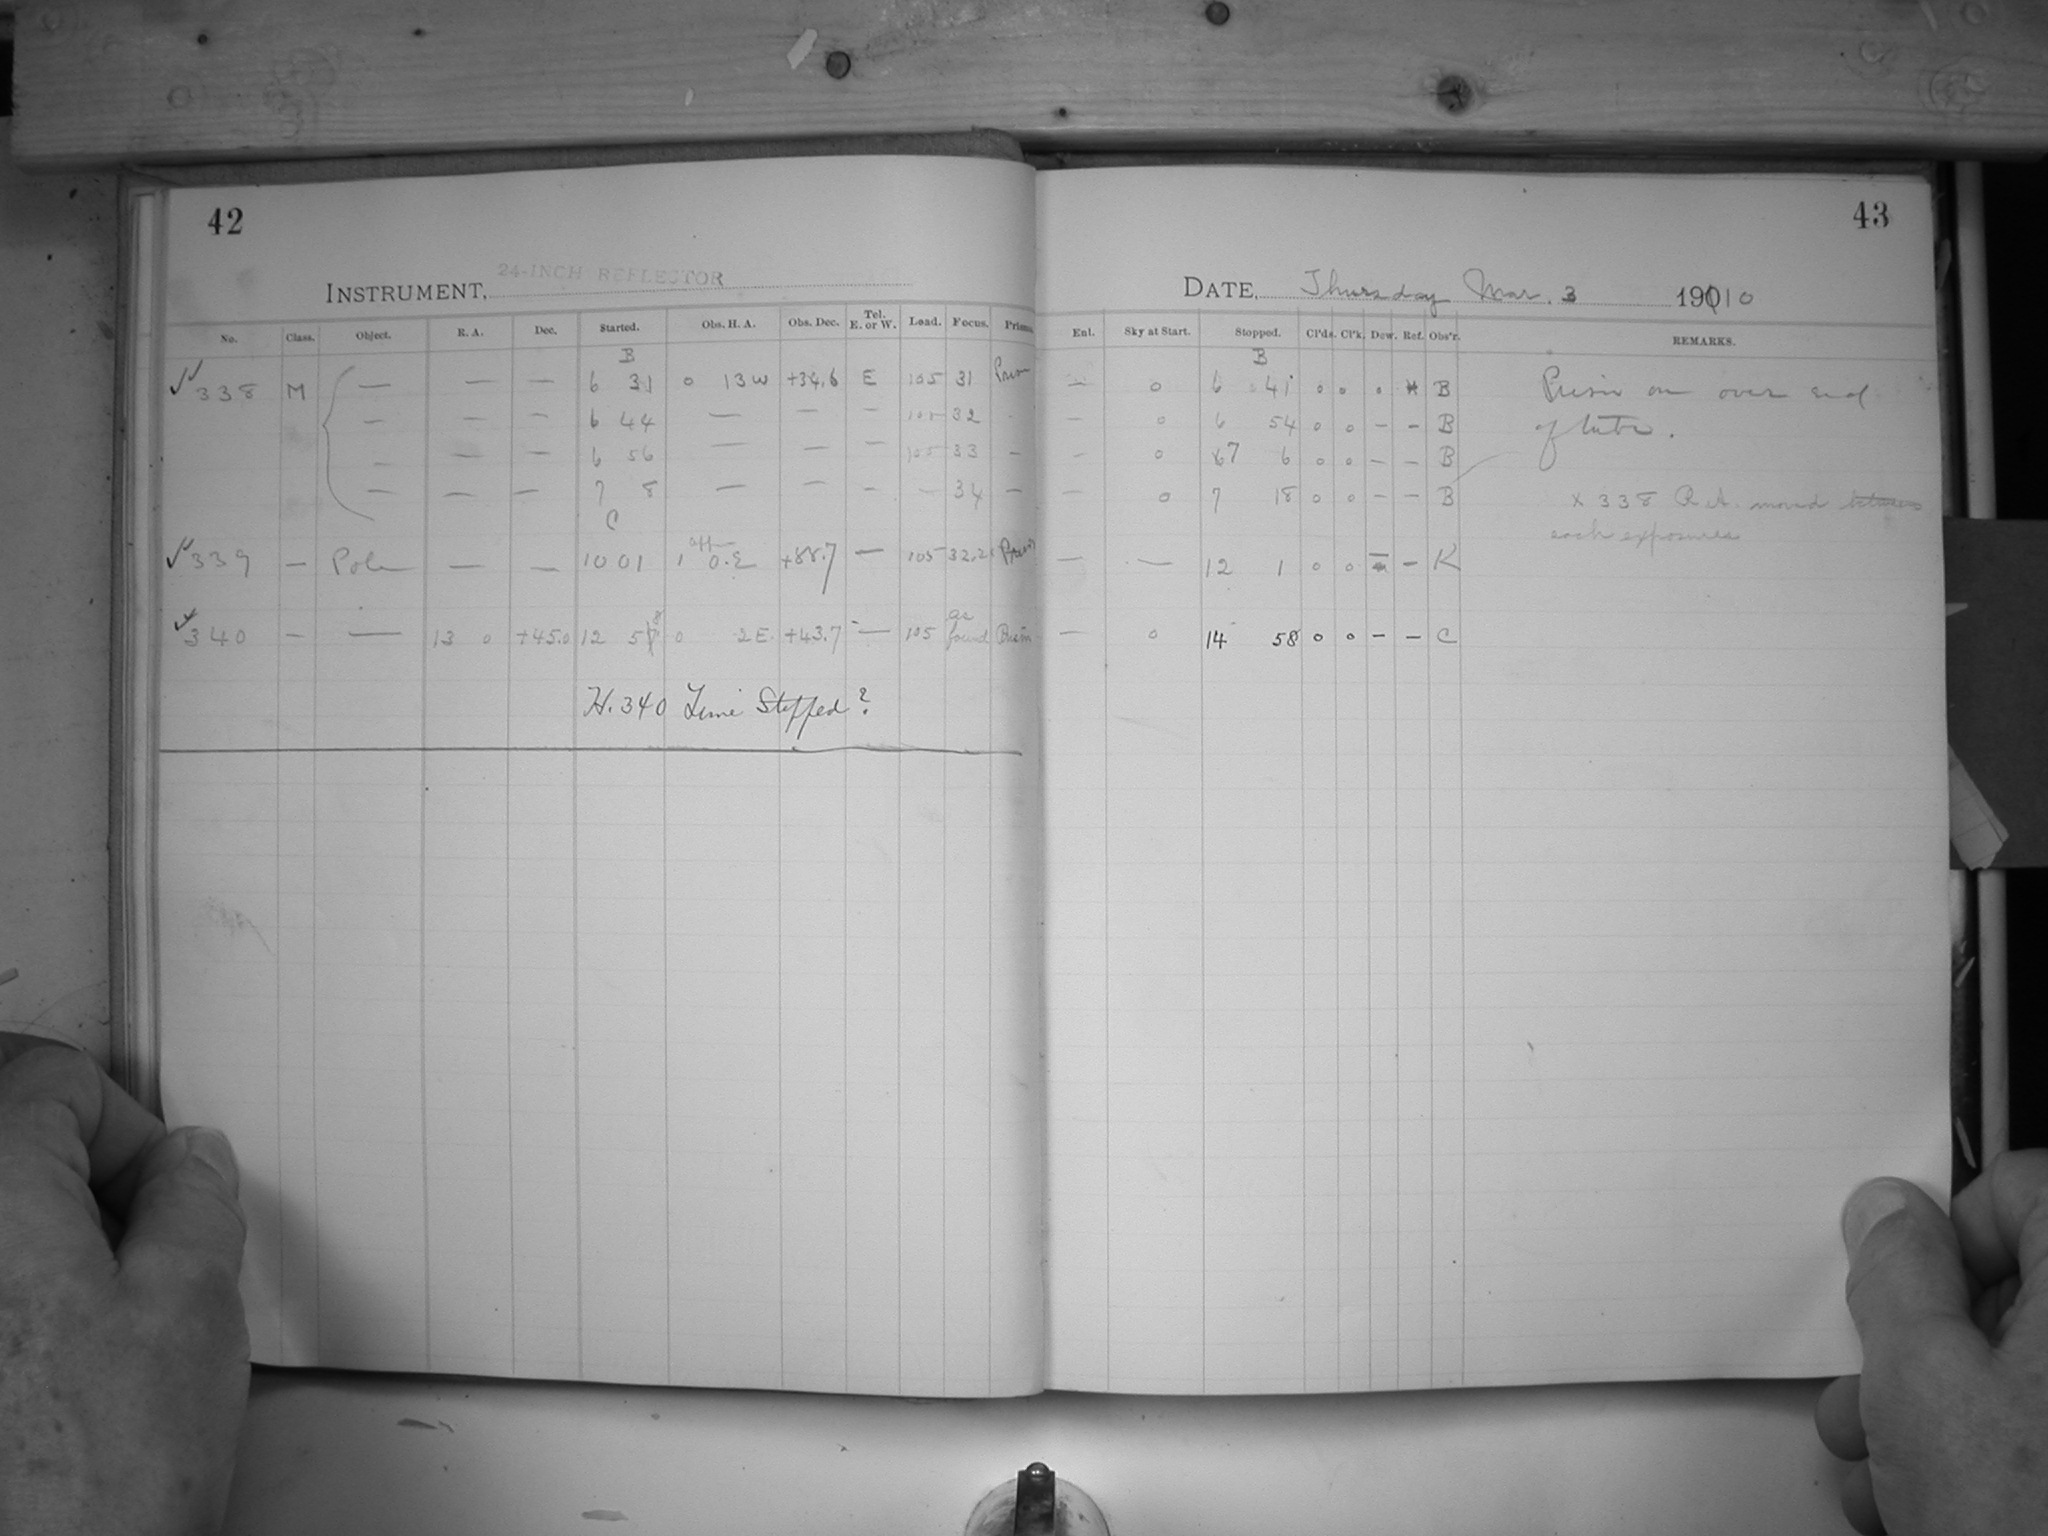 42
INSTRUMENT, 24-INCH REFLECTOR
No. Class. Object. R. A. Dec. Started. Obs. H. A. Obs. Dec. Tel. E. or W. Load. Focus. Prism.
B
338 M — — — 6 31 0 13 W +34.6 E 105 31 Prism
— — — 6 44 — — — 105 32
— — — 6 56 — — — 105 33 —
— — — 7 8 — — — — 34 —
C
339 — Pole — — 10 01 1 0.E +88.7 — 105 Prism
as
340 — — 13 0 +45.0 12 58 0 2 E. +43.7 — 105 found Prism
H. 340 Time Stopped?
43
DATE, Thursday Mar. 3 1910
Enl. Sky at Start. Stopped. Cl'ds. Cl'k. Dew. Ref. Obs'r. REMARKS.
B
— 0 6 41 0 0 0 B Prism on over end
— 0 6 54 0 0 — — B of tube.
— 0 7 6 0 0 — — B
— 0 7 18 0 0 — — B x 338 R.A. moved between
each exposures
— — 12 1 0 0 — — K
— 0 14 58 0 0 — — C